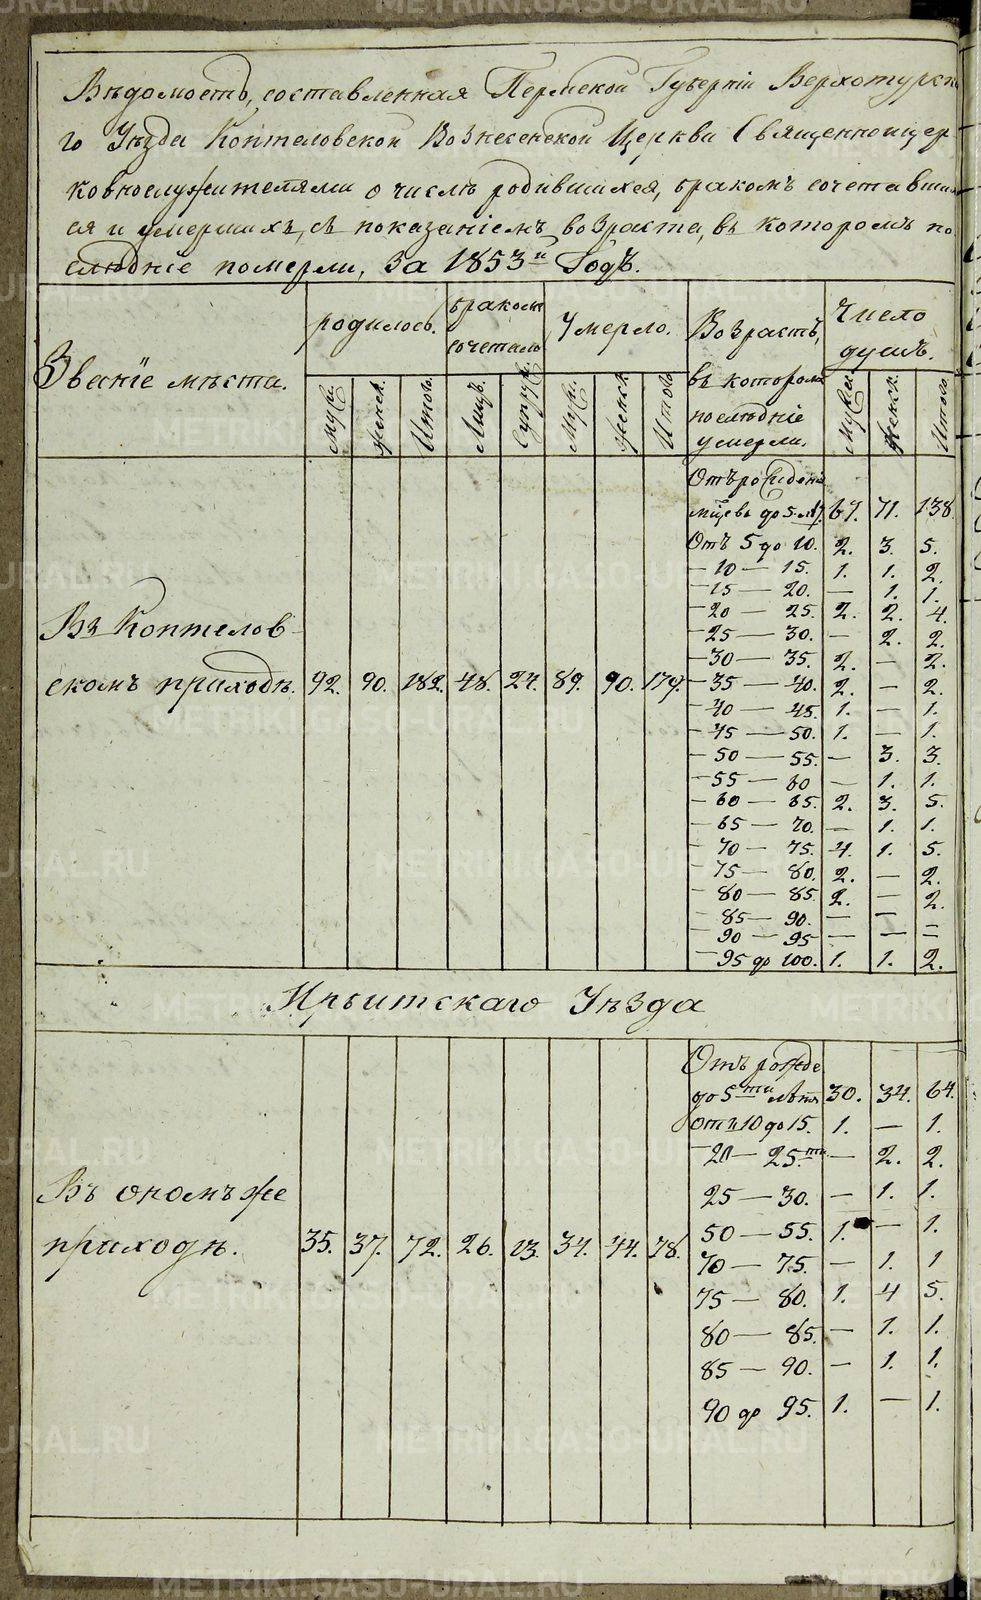 Вѣдомость, составленная Пермской Губерніи Верхотурска
го Уѣзда Коптеловской Вознесенской Церкви Священноцер
ковнослужителями о числѣ родившихся, бракомъ сочетавших
ся и умершихъ, съ показаніемъ возраста, въ которомъ по
слѣдніе померли, за 1853й Годъ.
Званіе мѣста. родилось. бракомъ сочеталось Умерло. Возрастъ, въ которомъ послѣдніе умерли. Число душъ.
Муж. Женск. Итогъ. Лицъ. Супруж. Муж. Женск. Итогъ Мужеск. Женск. Итого.
Отъ рожденія
до 5 лѣт. 67. 71. 138.
Отъ 5 до 10. 2. 3. 5.
— 10 — 15. 1. 1. 2.
— 15 — 20. — 1. 1.
— 20 — 25. 2. 2. 4.
— 25 — 30. — 2. 2.
Въ Коптелов
— 30 — 35. 2. — 2.
скомъ приходѣ. 92. 90. 182. 48. 24. 89. 90. 179. — 35 — 40. 2. — 2.
— 40 — 45. 1. — 1.
— 45 — 50. 1. — 1.
— 50 — 55. — 3. 3.
— 55 — 60 — 1. 1.
— 60 — 65. 2. 3. 5.
— 65 — 70. — 1. 1.
— 70 — 75. 4. 1. 5.
— 75 — 80. 2. — 2.
— 80 — 85. 2. — 2.
— 85 — 90. — —
— 90 — 95 — — =
— 95 до 100. 1. 1. 2.
Ирбитскаго Уѣзда
Отъ рожде
до 5ти лѣтъ 30. 34. 64.
отъ 10 до 15. 1. — 1.
— 20 — 25.ти — 2. 2.
Въ ономъ же
25 — 30. — 1. 1.
приходѣ. 35. 37. 72. 26. 13. 34. 44. 78. 50 — 55. 1. — 1.
70 — 75. — 1. 1
75 — 80. 1. 4 5.
80 — 85. — 1. 1.
85 — 90. — 1. 1.
90 до 95. 1. — 1.
METRIKI.GASO-URAL.RU